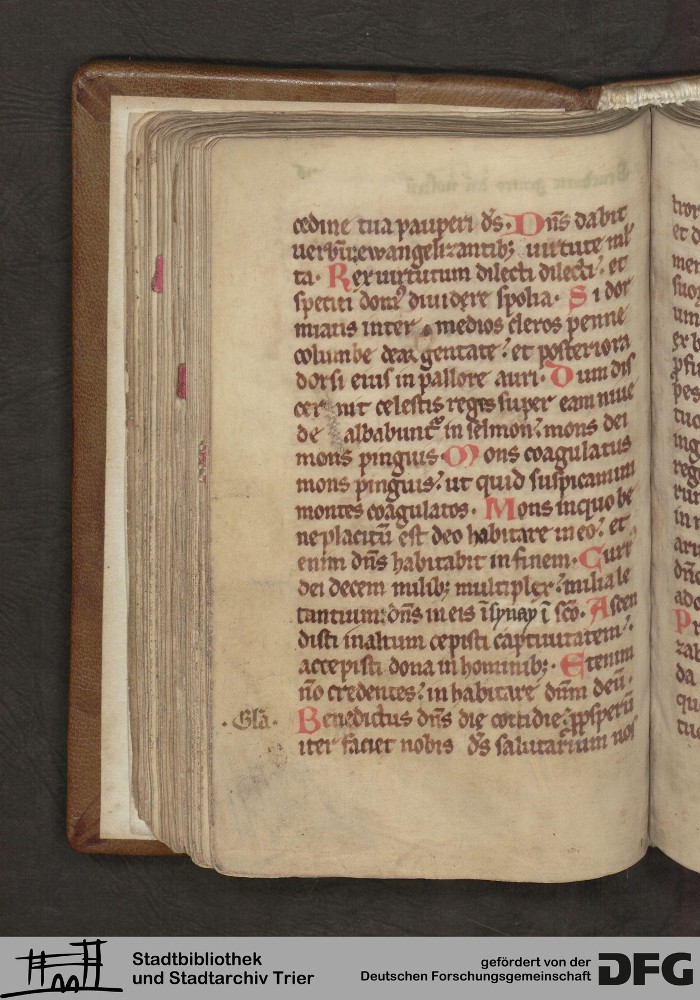 cedine tua pauperi ds̄. Dn̄s dabit
uerbū ewangelizantib; uirtute ml̄
ta. Rex uirtutum dilecti dilecti: et
spetiei domꝰ diuidere spolia. Si dor
miatis inter medios cleros penne
columbe dear gentate: et posteriora
dorsi eius in pallore auri. Dum dis
cer nit celestis reges super eam niue
de albabunt̄ in selmon: mons dei
mons pinguis Mons coagulatus
mons pinguis: ut quid suspicamini
montes coagulatos. Mons in quo be
neplacitū est deo habitare in eo: et
enim dn̄s habitabit in finem. Curr
dei decem milib; multiplex: milia le
tantium: dn̄s in eis ī synay ī scō. Ascen
disti in altum cepisti captiuitatem:
accepisti dona in hominib;. Etenim
nō credentes: in habitare dn̄m deū.
.Glā. Benedictus dn̄s die cottidie: prosperū
iter faciet nobis ds̄ salutarium nos
Stadtbibliothek
und Stadtarchiv Trier
gefördert von der
Deutschen Forschungsgemeinschaft
DFG